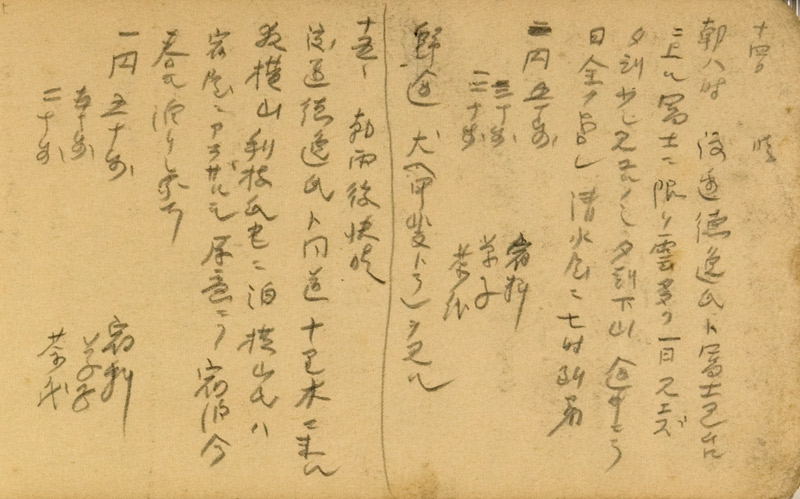 十四日 晴
朝八時 渡邊徳逸氏ト富士見台
ニ上ル 富士ニ限リ雲多ク一日見エズ
夕刻少シ見エルノミ 夕刻下山 途中ニテ
日全ク暮レ 清水屋ニ七時到着
二円五十銭 宿料
三十銭 菓子
二十銭 茶代
野途 犬(甲斐トラ)ヲ見ル
十五日 朝雨後快晴
渡辺徳逸氏ト同道 十里木ニ来ル
夜横山利校氏宅ニ泊 横山氏ハ
宿屋ニアラザルモ厚意ニテ宿泊
一円五十銭 宿料
五十銭 菓子
二十銭 茶代